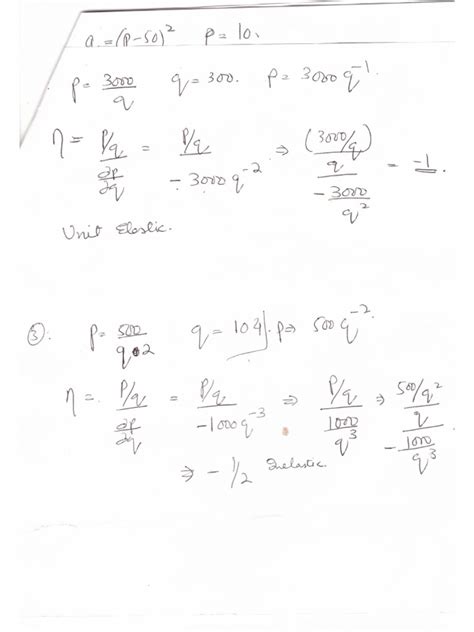 q = (P-50)² P = 10.
P = 3000/q q = 300. P = 3000 q⁻¹
η = (P/q)/(∂P/∂q) = (P/q)/(-3000 q⁻²) ⇒ ((3000/q)/q)/(-3000/q²) = -1.
Unit Elastic.
③. P = 500/q^2 q = 104 P ⇒ 500 q⁻².
η = (P/q)/(∂P/∂q) = (P/q)/(-1000 q⁻³) ⇒ (P/q)/(1000/q³) ⇒ ((500/q²)/q)/(-1000/q³)
⇒ -1/2 Inelastic.